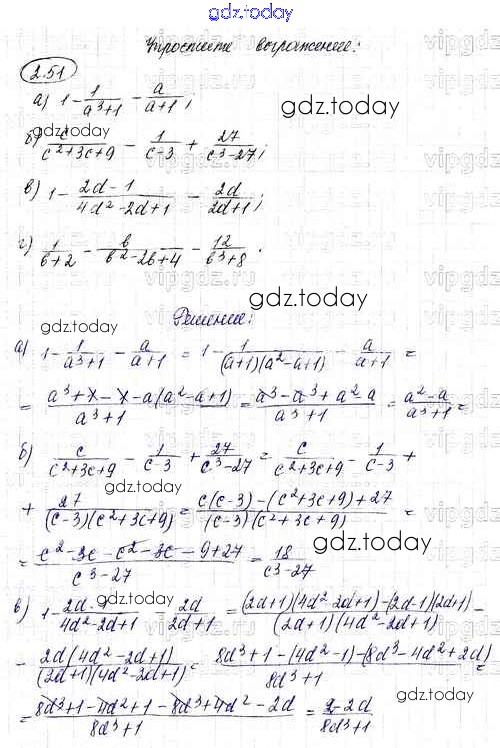 gdz.today
Упростите выражение:
2.51
а) 1 - 1/(a³+1) - a/(a+1);
gdz.today
б) c/(c²+3c+9) - 1/(c-3) + 27/(c³-27);
в) 1 - (2d-1)/(4d²-2d+1) - 2d/(2d+1);
г) 1/(b+2) - b/(b²-2b+4) - 12/(b³+8).
gdz.today
Решение:
gdz.today
а) 1 - 1/(a³+1) - a/(a+1) = 1 - 1/((a+1)(a²-a+1)) - a/(a+1) =
= (a³+1-1-a(a²-a+1))/(a³+1) = (a³-a³+a²-a)/(a³+1) = (a²-a)/(a³+1) =
gdz.today
б) c/(c²+3c+9) - 1/(c-3) + 27/(c³-27) = c/(c²+3c+9) - 1/(c-3) +
gdz.today
+ 27/((c-3)(c²+3c+9)) = (c(c-3)-(c²+3c+9)+27)/((c-3)(c²+3c+9)) =
gdz.today
= (c²-3c-c²-3c-9+27)/(c³-27) = 18/(c³-27)
gdz.today
в) 1 - (2d-1)/(4d²-2d+1) - 2d/(2d+1) = ((2d+1)(4d²-2d+1)-(2d-1)(2d+1))/((2d+1)(4d²-2d+1)) -
- 2d(4d²-2d+1)/((2d+1)(4d²-2d+1)) = (8d³+1-(4d²-1)-(8d³-4d²+2d))/(8d³+1) =
gdz.today
= (8d³+1-4d²+1-8d³+4d²-2d)/(8d³+1) = (2-2d)/(8d³+1)
gdz.today